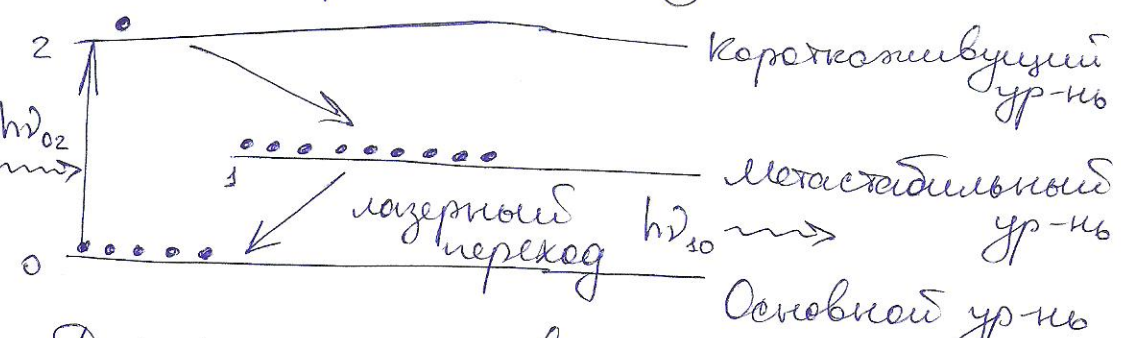 2
Короткоживущий
ур-нь
hν₀₂
1
Метастабильный
ур-нь
лазерный
переход
hν₁₀
0
Основной ур-нь